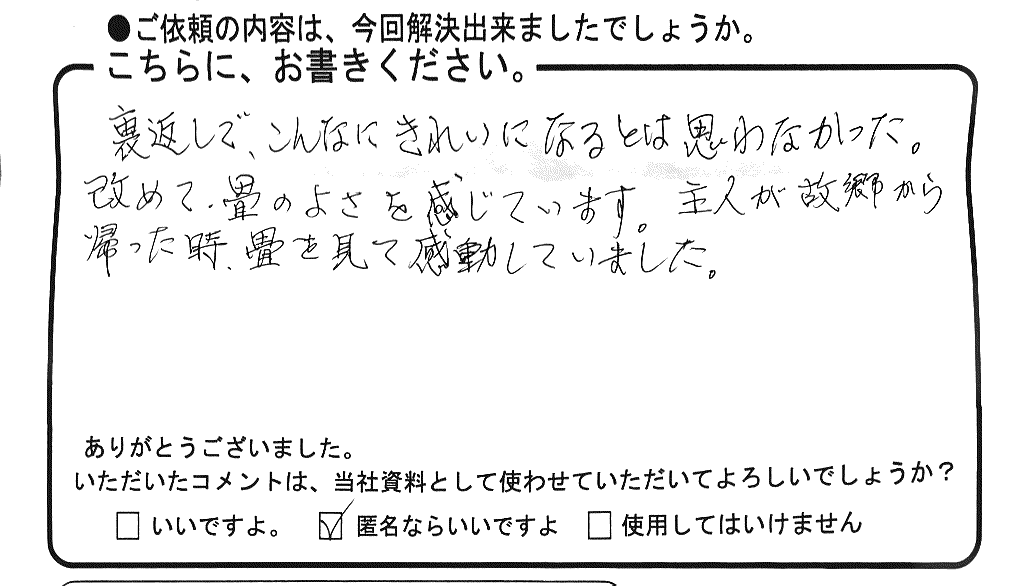 ●ご依頼の内容は、今回解決出来ましたでしょうか。
こちらに、お書きください。
裏返しで、こんなにきれいになるとは思わなかった。
改めて、畳のよさを感じています。主人が故郷から
帰った時、畳を見て感動していました。
ありがとうございました。
いただいたコメントは、当社資料として使わせていただいてよろしいでしょうか？
□ いいですよ。 ☑ 匿名ならいいですよ □ 使用してはいけません